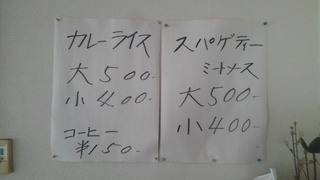 カレーライス
大500-
小400-
コーヒー
¥150-
スパゲティー
ミートソース
大500-
小400-